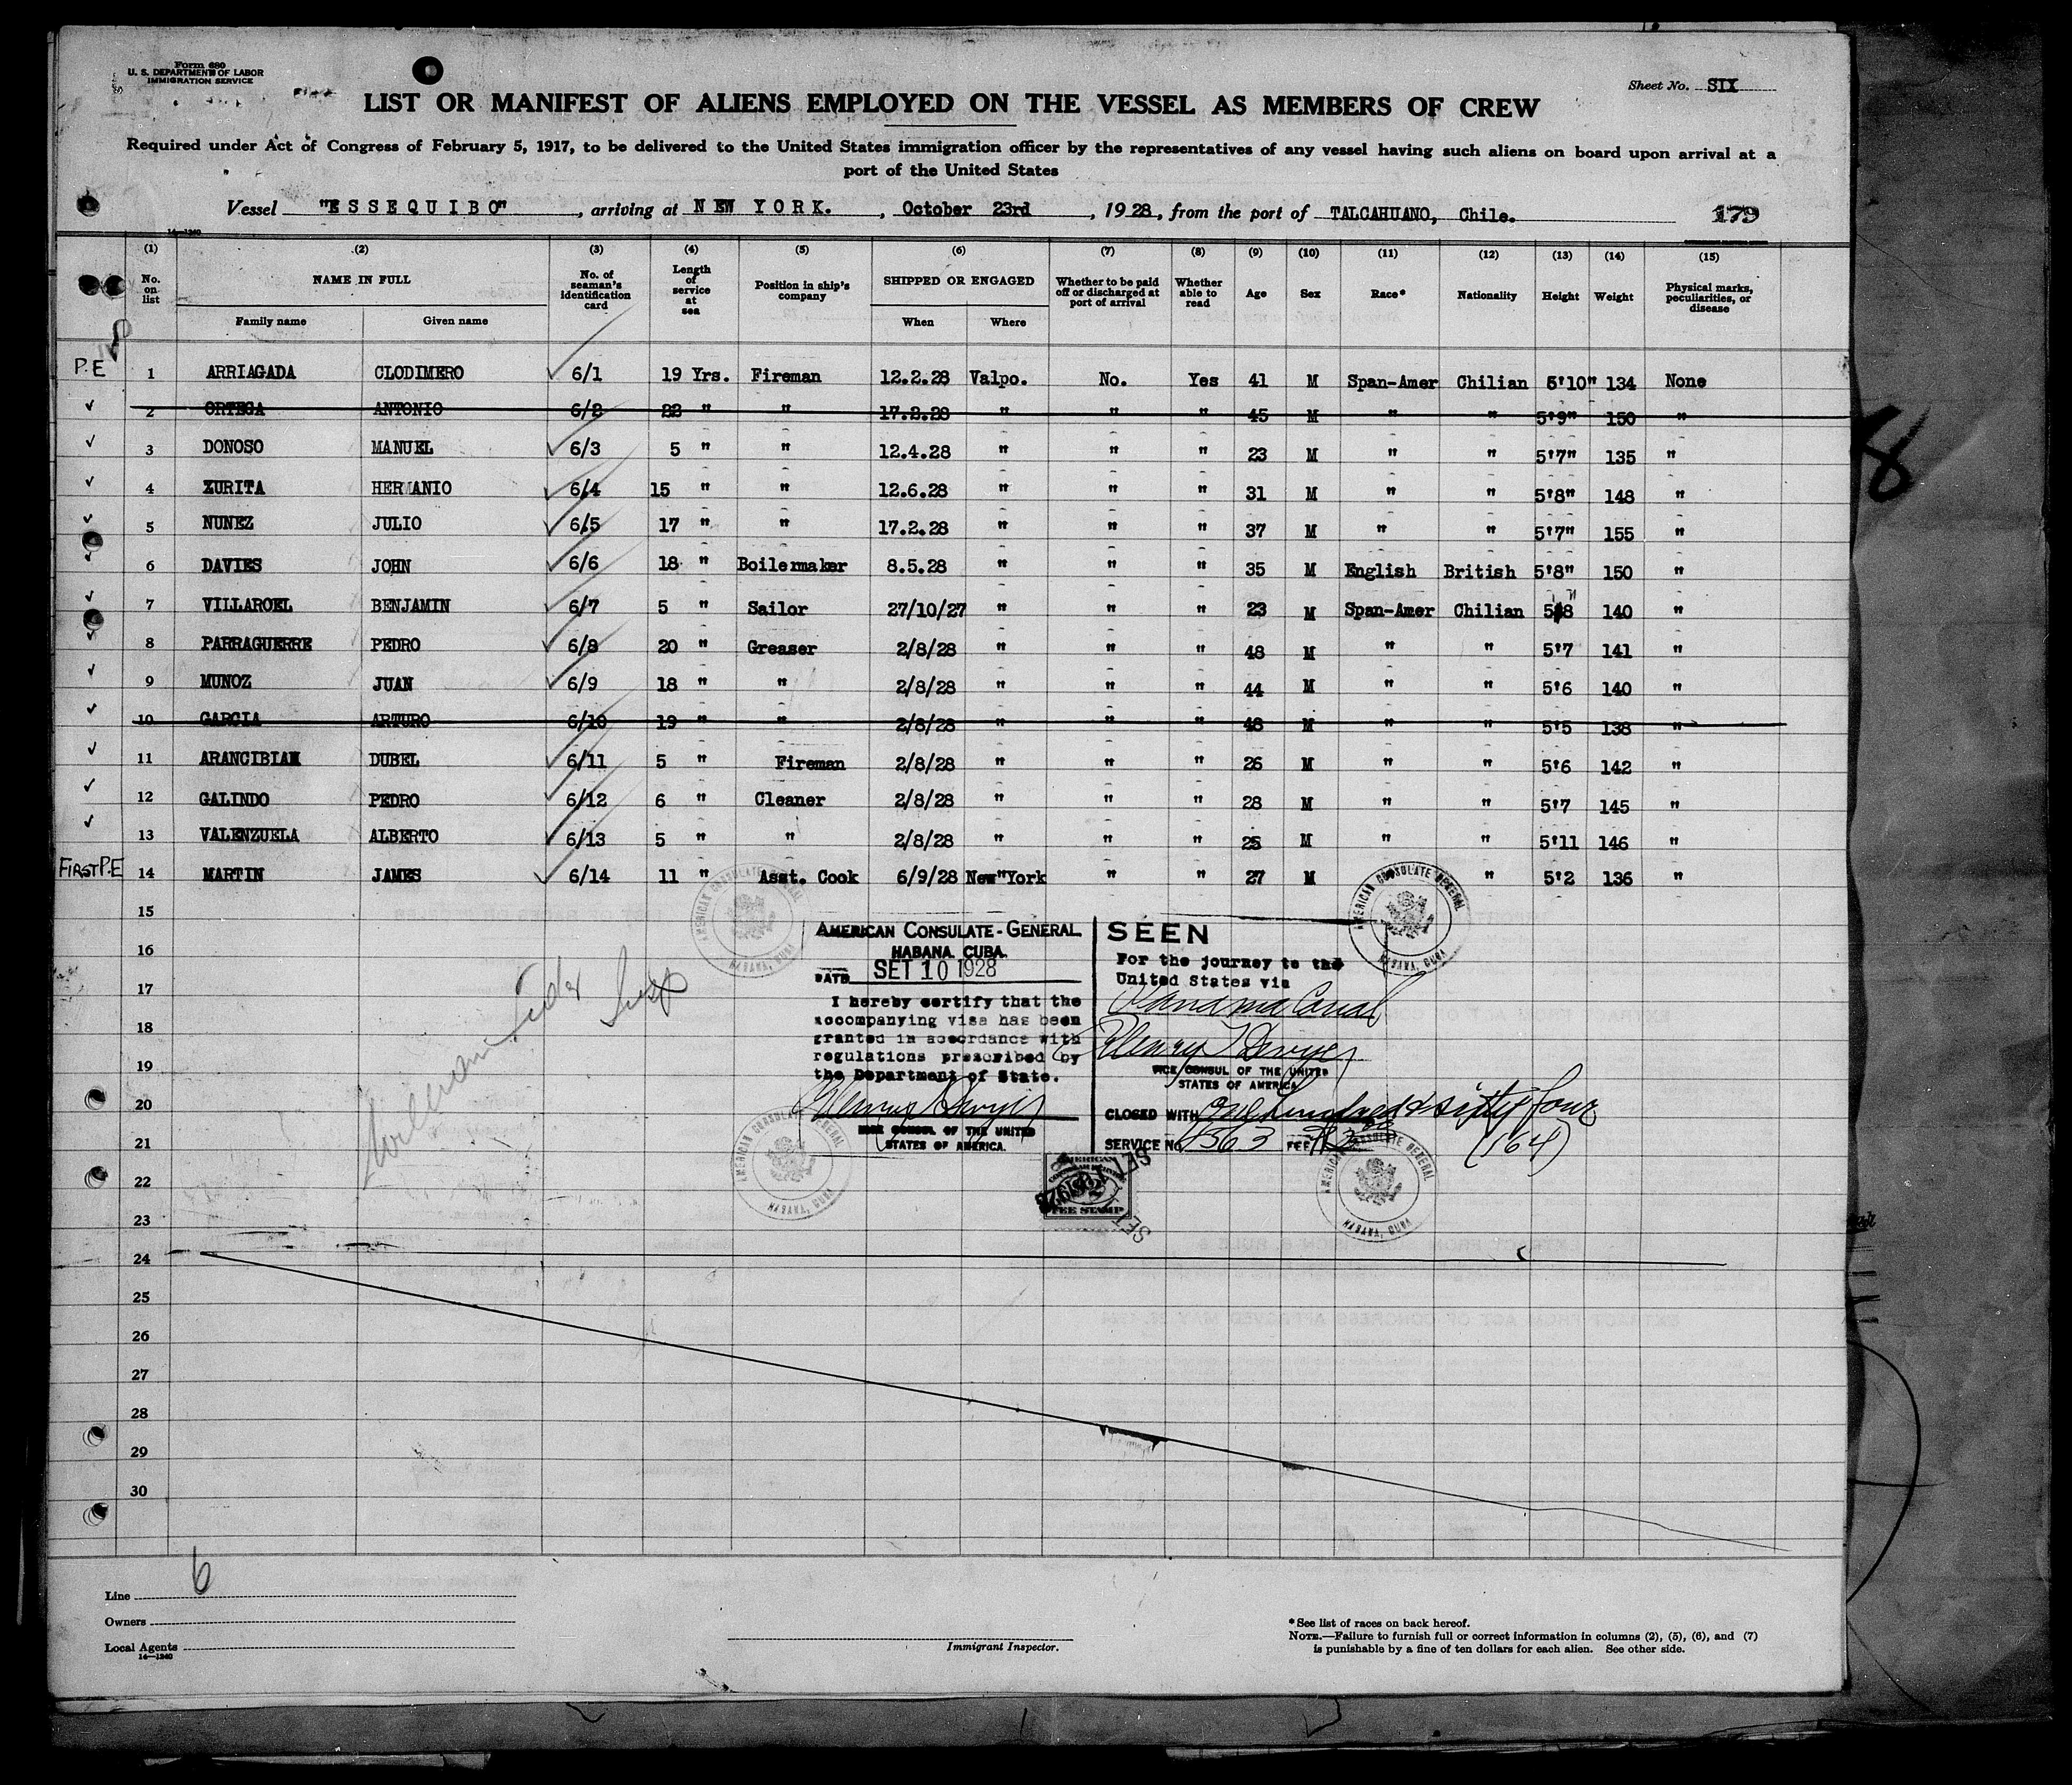 Form 680
U. S. DEPARTMENT OF LABOR
IMMIGRATION SERVICE
Sheet No. SIX
LIST OR MANIFEST OF ALIENS EMPLOYED ON THE VESSEL AS MEMBERS OF CREW
Required under Act of Congress of February 5, 1917, to be delivered to the United States immigration officer by the representatives of any vessel having such aliens on board upon arrival at a
port of the United States
Vessel "ESSEQUIBO", arriving at NEW YORK., October 23rd, 1928, from the port of TALCAHUANO, Chile. 179
14—1240
(1) (2) (3) (4) (5) (6) (7) (8) (9) (10) (11) (12) (13) (14) (15)
No. on list NAME IN FULL Family name Given name No. of seaman's identification card Length of service at sea Position in ship's company SHIPPED OR ENGAGED When Where Whether to be paid off or discharged at port of arrival Whether able to read Age Sex Race* Nationality Height Weight Physical marks, peculiarities, or disease
P.E 1 ARRIAGADA CLODIMERO 6/1 19 Yrs. Fireman 12.2.28 Valpo. No. Yes 41 M Span-Amer Chilian 5'10" 134 None
2 ORTEGA ANTONIO 6/2 22 " " 17.2.28 " " " 45 M " " 5'9" 150 "
3 DONOSO MANUEL 6/3 5 " " 12.4.28 " " " 23 M " " 5'7" 135 "
4 ZURITA HERMANIO 6/4 15 " " 12.6.28 " " " 31 M " " 5'8" 148 "
5 NUNEZ JULIO 6/5 17 " " 17.2.28 " " " 37 M " " 5'7" 155 "
6 DAVIES JOHN 6/6 18 " Boilermaker 8.5.28 " " " 35 M English British 5'8" 150 "
7 VILLAROEL BENJAMIN 6/7 5 " Sailor 27/10/27 " " " 23 M Span-Amer Chilian 5'8" 140 "
8 PARRAGUERRE PEDRO 6/8 20 " Greaser 2/8/28 " " " 48 M " " 5'7 141 "
9 MUNOZ JUAN 6/9 18 " " 2/8/28 " " " 44 M " " 5'6 140 "
10 GARCIA ARTURO 6/10 19 " " 2/8/28 " " " 48 M " " 5'5 138 "
11 ARANCIBIA DUBEL 6/11 5 " Fireman 2/8/28 " " " 26 M " " 5'6 142 "
12 GALINDO PEDRO 6/12 6 " Cleaner 2/8/28 " " " 28 M " " 5'7 145 "
13 VALENZUELA ALBERTO 6/13 5 " " 2/8/28 " " " 25 M " " 5'11 146 "
FIRST P.E 14 MARTIN JAMES 6/14 11 " Asst. Cook 6/9/28 New York " " 27 M " 5'2 136 "
15
16
17
18
19
20
21
22
23
24
25
26
27
28
29
30
AMERICAN CONSULATE-GENERAL
HABANA CUBA
DATE SET 10 1928
I hereby certify that the
accompanying visa has been
granted in accordance with
regulations prescribed by
the Department of State.
Henry T Dwyer
VICE CONSUL OF THE UNITED
STATES OF AMERICA.
SEEN
For the journey to the
United States via
Panama Canal
Henry T Dwyer
VICE CONSUL OF THE UNITED
STATES OF AMERICA
CLOSED WITH One hundred & sixty four
(164)
SERVICE No. 8563 FEE
AMERICAN CONSULATE GENERAL
HABANA, CUBA
AMERICAN CONSULATE GENERAL
HABANA, CUBA
AMERICAN CONSULATE GENERAL
HABANA, CUBA
AMERICAN CONSULATE GENERAL
HABANA, CUBA
AMERICAN
FEE STAMP
8
6
Line
Owners
Local Agents
14—1240
Immigrant Inspector.
*See list of races on back hereof.
NOTE.—Failure to furnish full or correct information in columns (2), (5), (6), and (7)
is punishable by a fine of ten dollars for each alien. See other side.